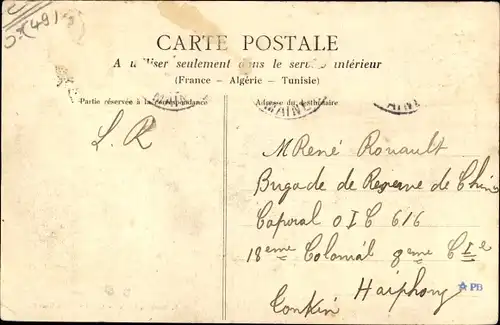 (49)
CARTE POSTALE
A utiliser seulement dans le service intérieur
(France - Algérie - Tunisie)
Partie réservée à la correspondance
Adresse du destinataire
L. R
M René Rouault
Brigade de Reserve de Chine
Caporal o I C 616
18eme Colonial 8eme Cie
Haiphong
Tonkin
PB